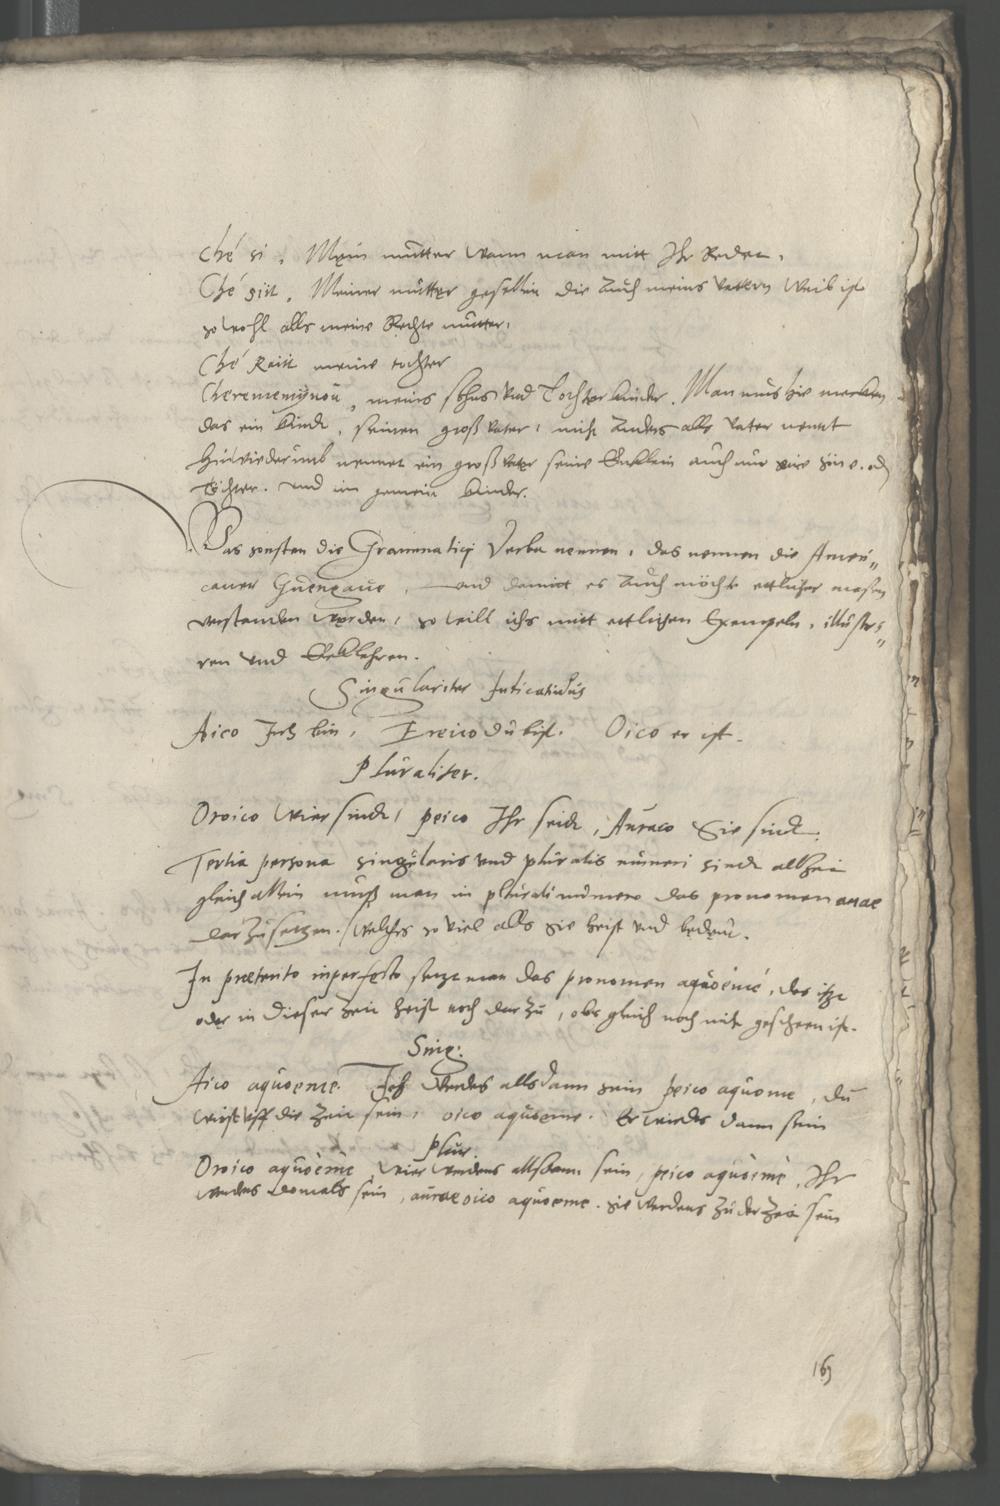 Ché si, Mein mutter wann man mitt Ihr Reden.
Ché siit, Meiner mutter gesellin die auch meins Vattern Weib ist
so wohl alls meine Rechte mutter.
Ché Raiit meine tochter
Cheremeniynou, meins sohns und Tochter kinder. Man mus hie mercken
das ein kindt, seinen groß vater, nicht anders alls vater nennt
hinwiederumb nennet ein groß vater seine Encklein auch nur
Töchter. und im gemein kinder.
Was sonsten die Grammatici Verba nennen, das nennen die Ameri„
caner Guengave, und damitt es auch möchte ettlicher masen
verstanden werden, so will ichs mitt ettlichen Exempeln, illustri„
ren und Erklehren.
Singulariter Inticatiuus
Aico Ich bin, Ereico du bist. Oico er ist.
Pluraliter.
Oroico wier sindt, peico Ihr seidt, Auraco Sie sindt.
Tertia persona singularis und pluralis numeri sindt allzeit
gleich allein muss man in plurali numero das pronomen aurae
darzu setzen. welches so viel alls sie heist und bedeut.
In preterito inperfecto setzt man das pronomen aquoémé, das itzt
oder in dieser zeit heist noch darzu, obs gleich noch nicht gescheen ist.
Sing:
Aico aquoeme. Ich werdes allsdann sein peico aquome, du
wirst uff die Zeit sein, oico aquoeme. Er wirdes dann sein
Plur.
Oroico aquoeme, wier werdens allsdann sein, peico aquoeme, Ihr
werdes domals sein, aurae oico aquoeme. sie werdens zu der zeit sein
169